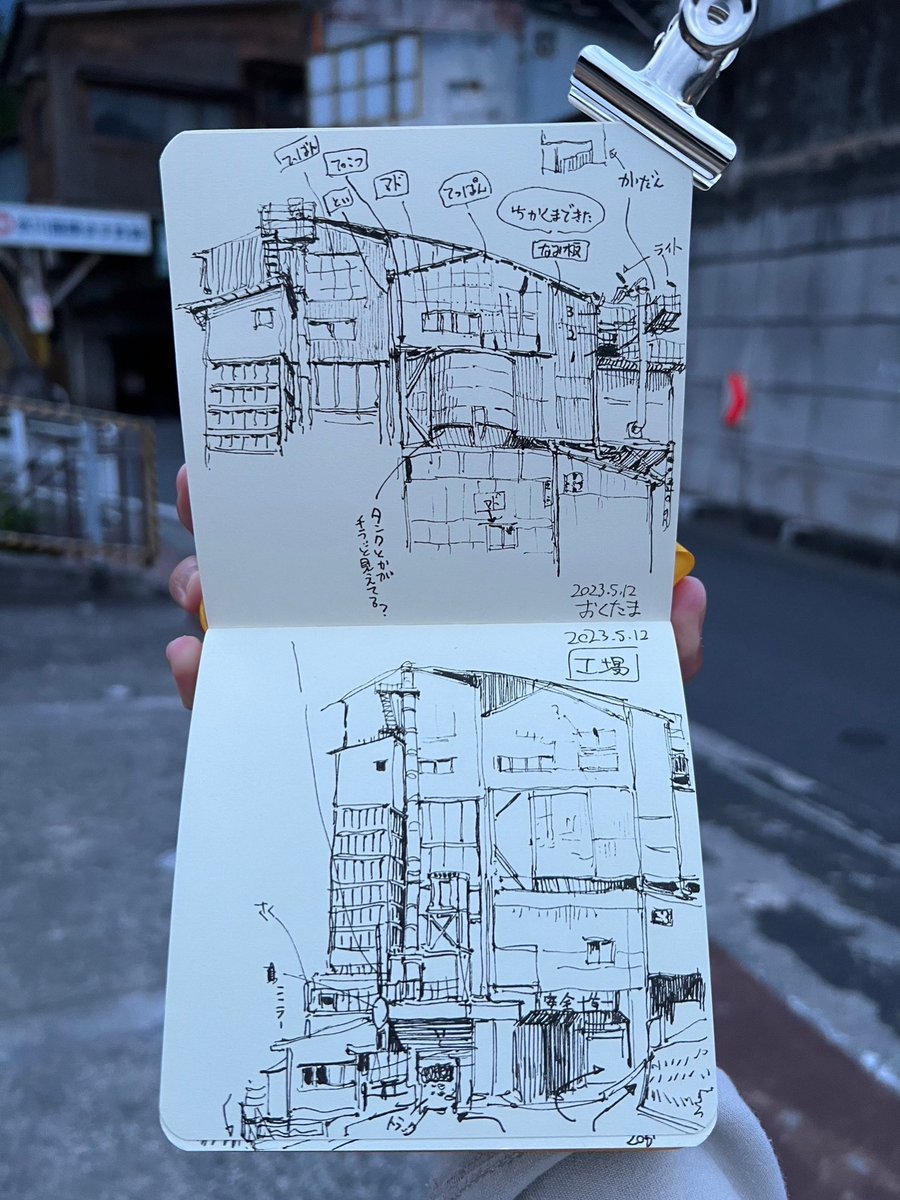 てっぱん
てっこつ
とい
マド
てっぱん
ちかくまできた
なみ板
かだん
ライト
マド
タンクとかが
チラッと見えてる?
2023.5.12
おくたま
2023.5.12
工場
?
ミラー
安全
トラック